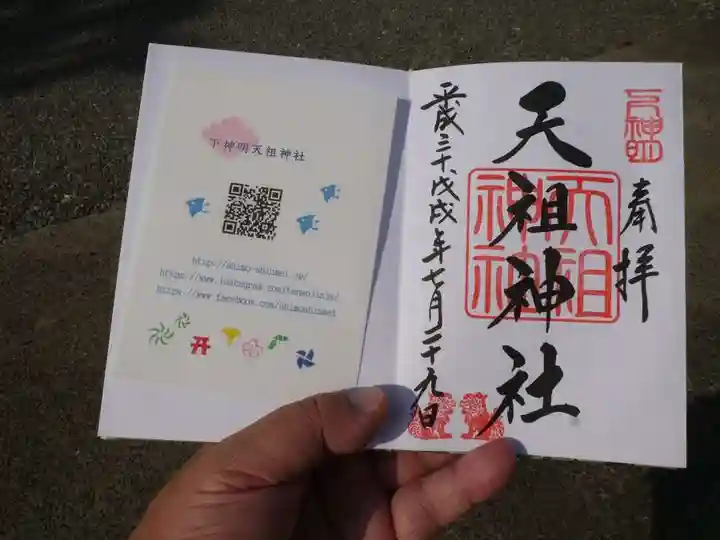 下神明天祖神社
http://shimo-shinmei.jp/
https://www.facebook.com/shimoshinmei
下神明
奉拝
天祖神社
天祖神社
平成三十戊戌年七月二十九日